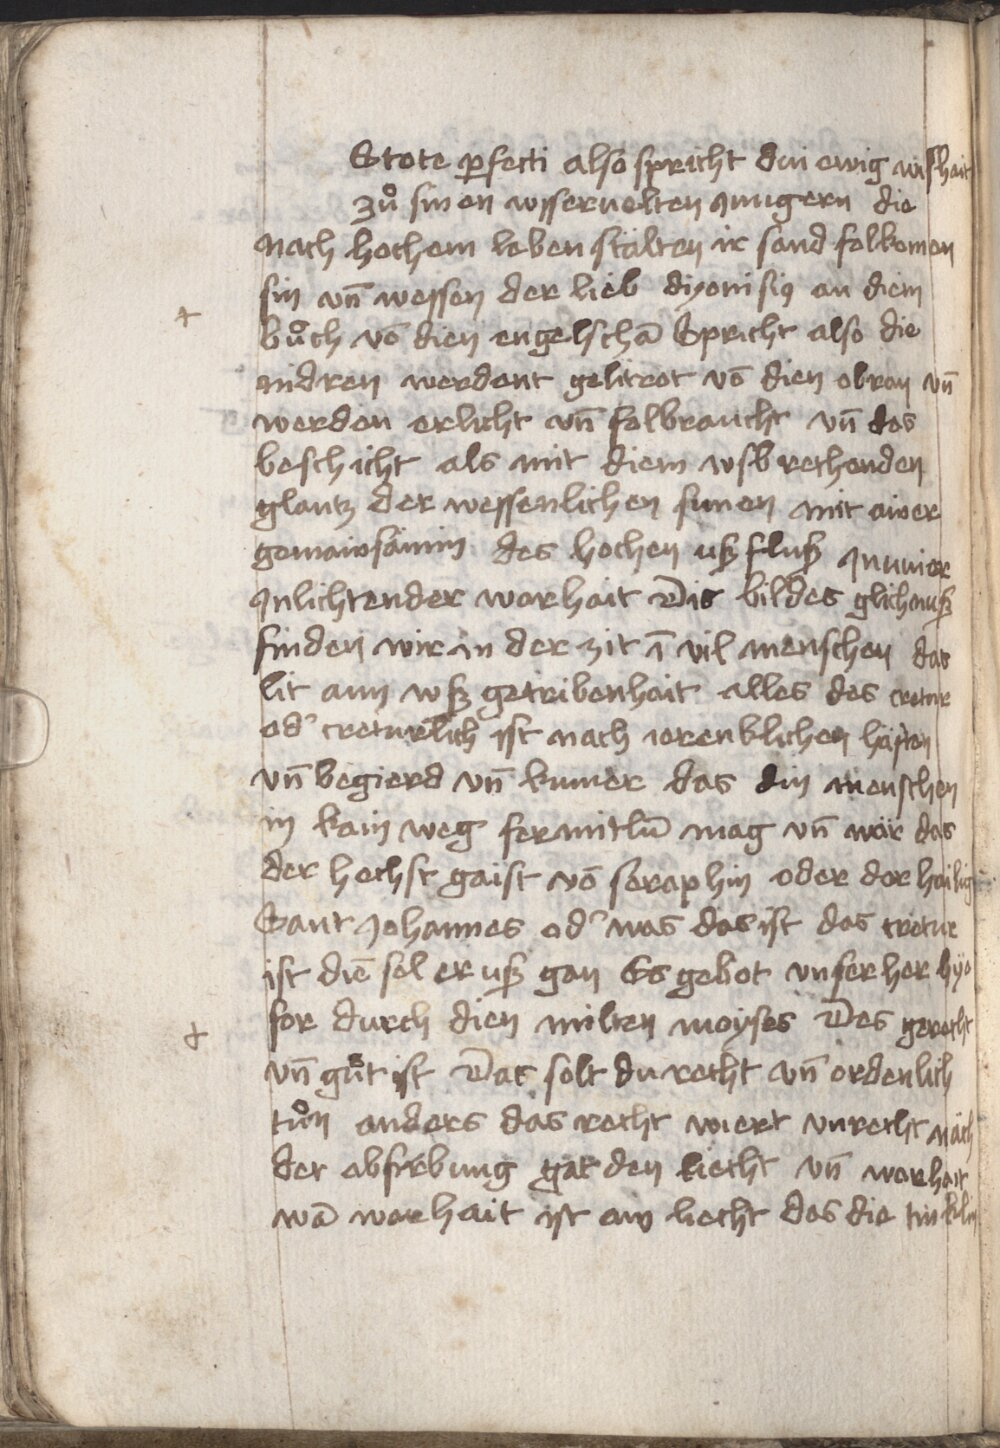 Stote ꝑfecti also spricht diu ewig wishait
zuͦ sinen vsseruelten Jungern die
nach hochem leben stälten ir sond folkomen
sin vn̄ wessen der lieb dyonisiꝯ an diem
buͦch vō dien engelschā Spricht also die
nidren werdent gelitrot vō dien obran vn̄
werden erlicht vn̄ folbraucht vn̄ das
beschicht als mit diem vsbrechenden
glantz der wessenlichen sunen mit ainer
gemainsämin des hochen usz flusz Jnuuier
Jnlichtender worhait Dis bildes glichnusz
finden wir in der zit ī vil menschen das
lit ann vsz getribenhait alles des cretur
od᾽ creturlich ist nach ierenklichen häften
vn̄ begierd vn̄ kumer das din menschen
in kain weg fermitlū mag vn̄ wär das
der hochst gaist vō seraphin oder der hailig
Sant Johannes od᾽ was das ist das cretur
ist diē sol er usz gan Es gebot vnser her hye
for durch dien milten moyses Des gerecht
vn̄ guͦt ist Das solt du recht vn̄ ordenlich
tuͦn anders das recht wiert vnrecht näch
der absrbung gät den liecht vn̄ worhait
wā worhait ist ain liecht des die